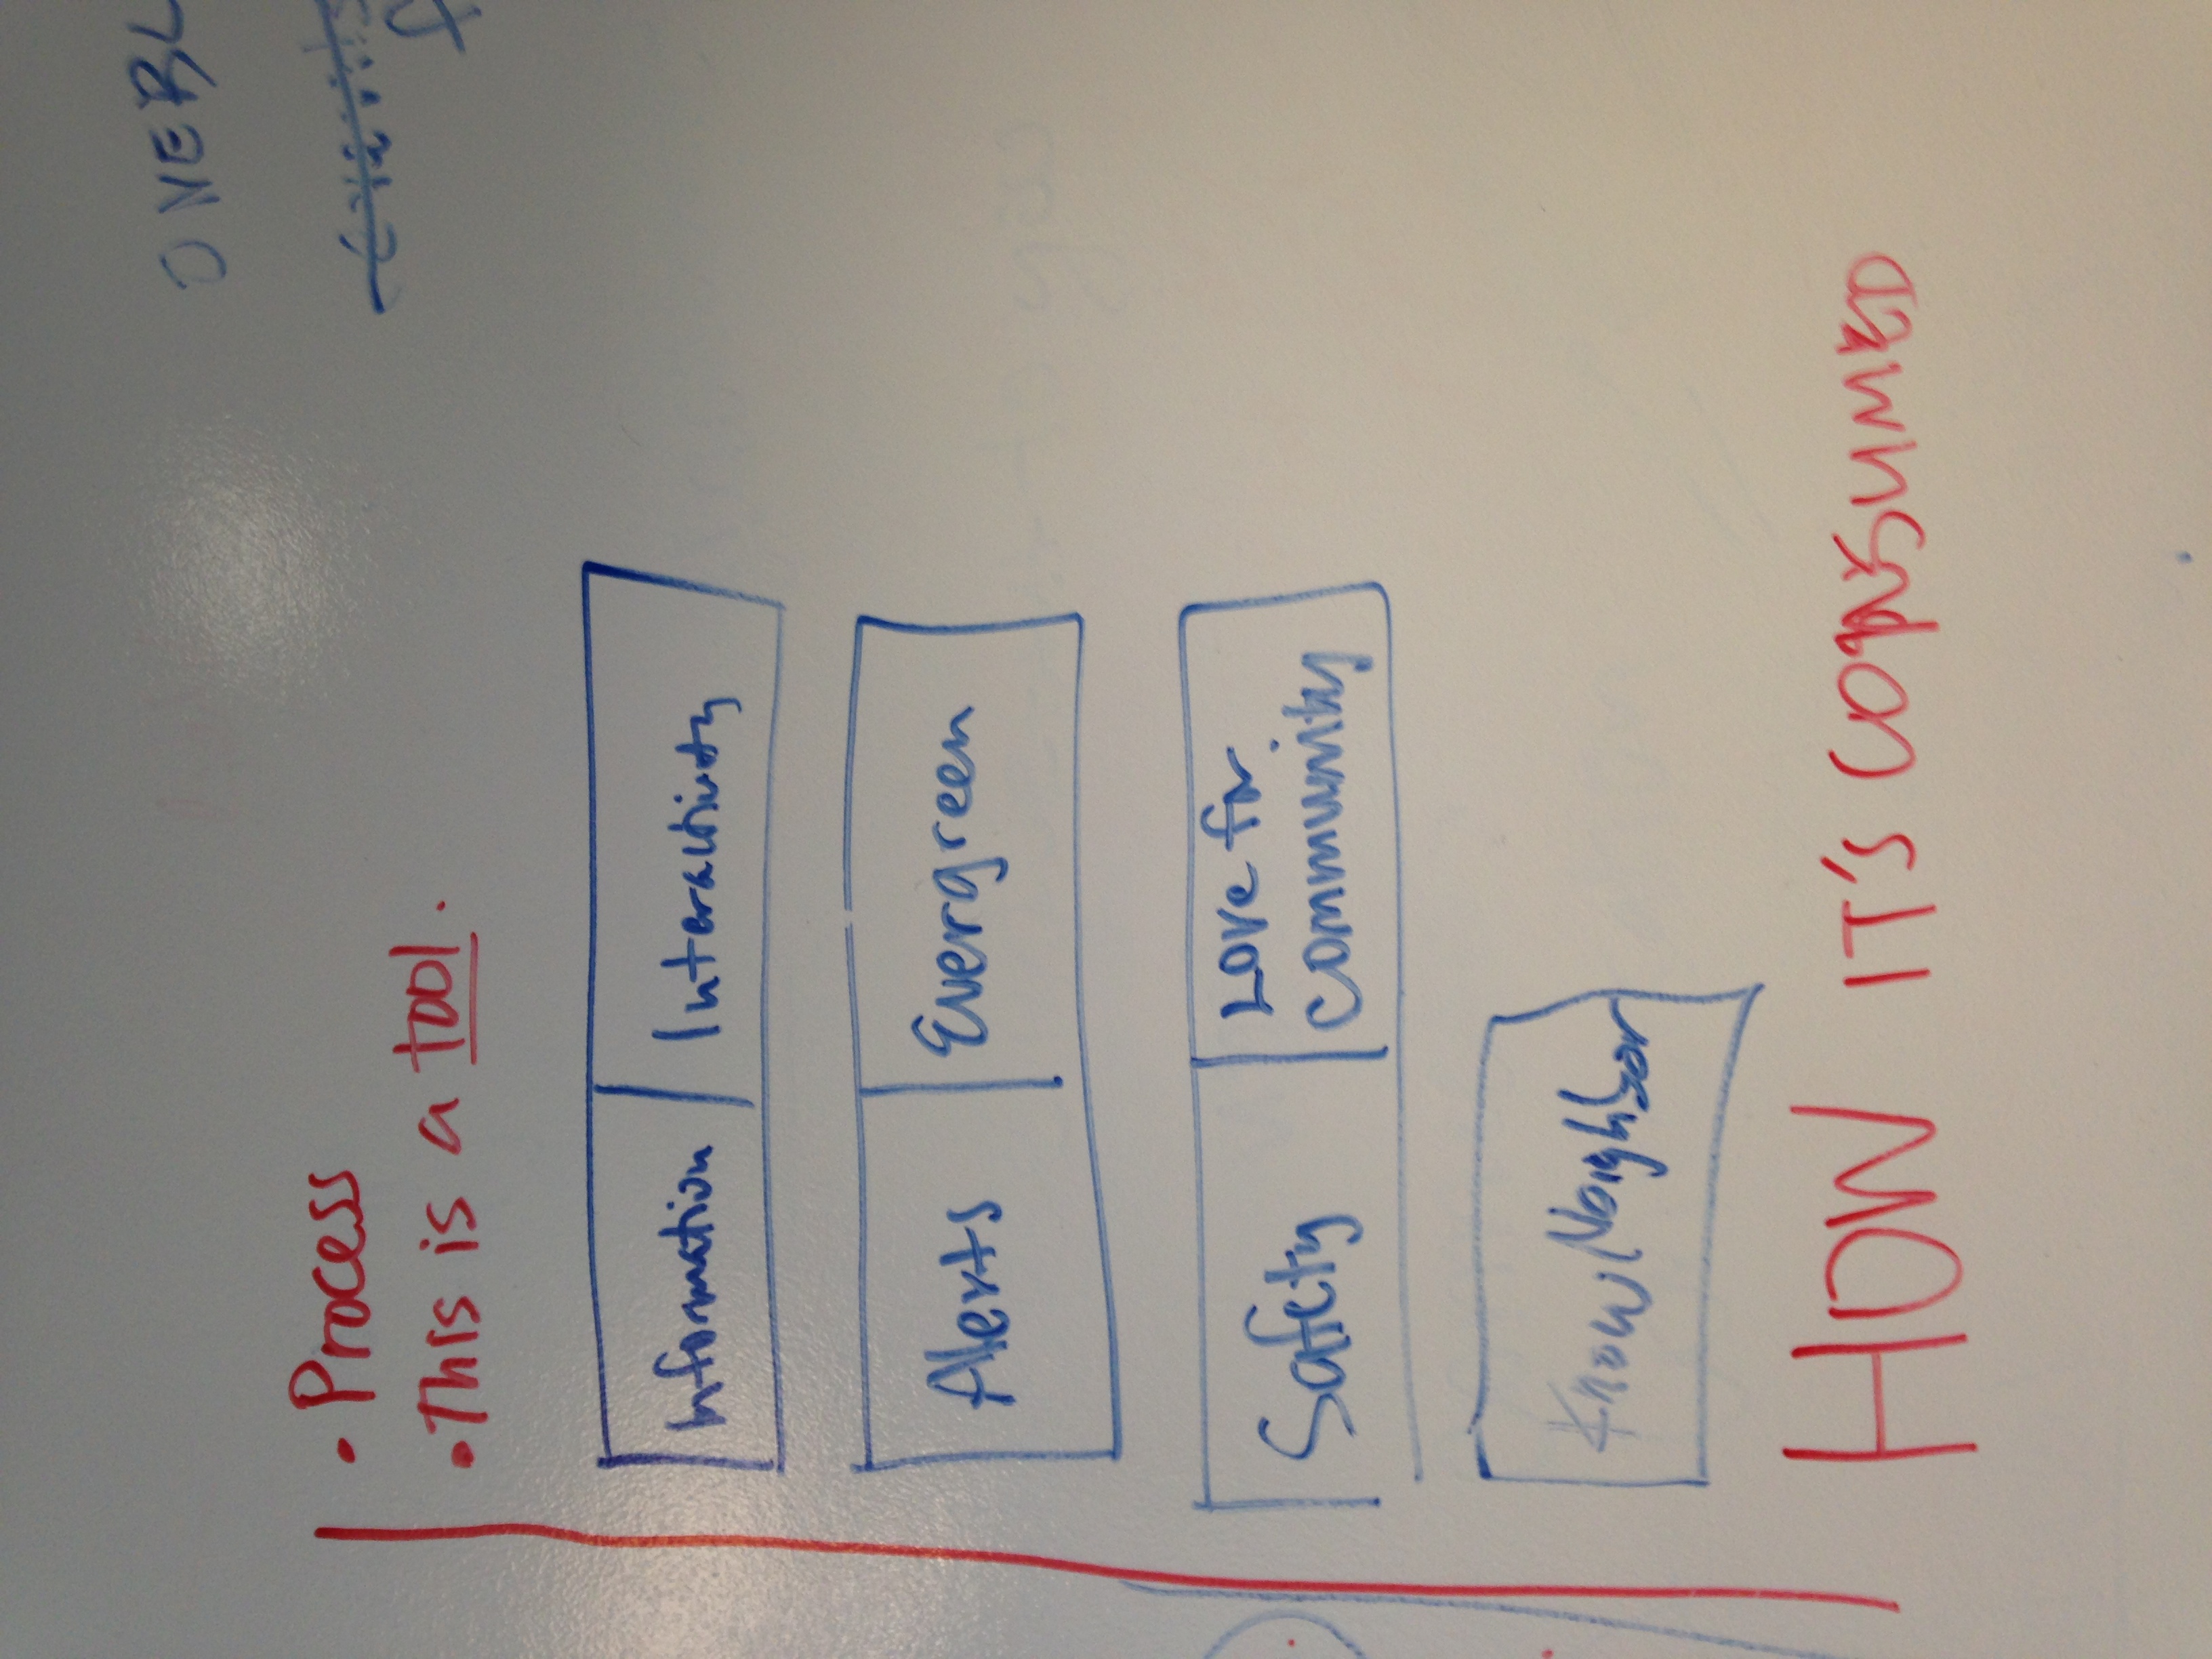 • Process
• This is a tool.
Information | Interactivity
Alerts | Evergreen
Safety | Love for
community
Know Neighbor
HOW IT'S CONSUMED